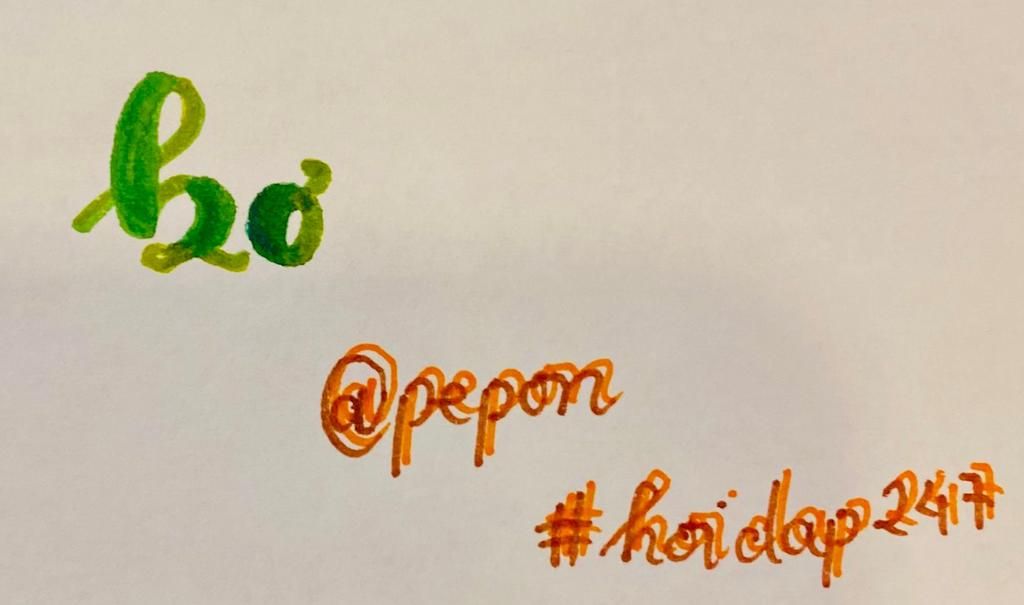 bơ
@pepon
#hoidap247